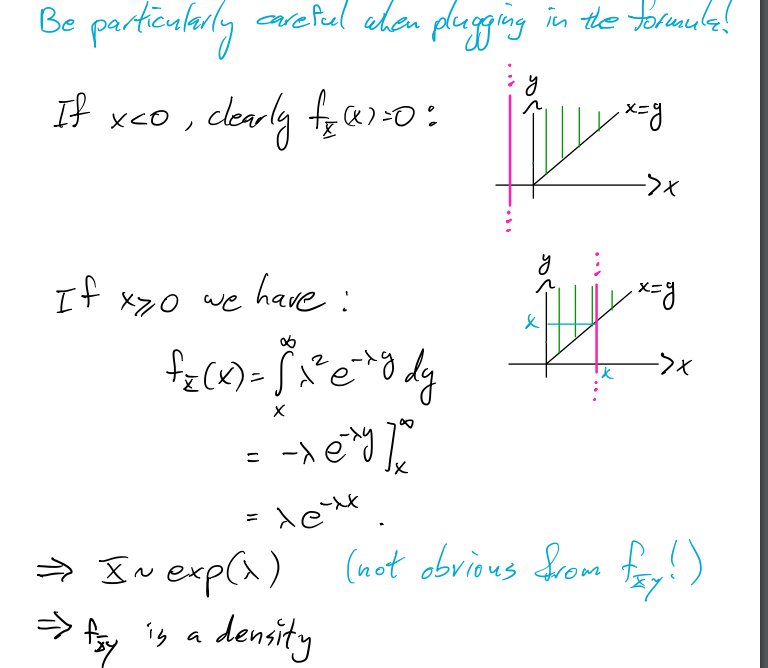 Be particularly careful when plugging in the formula!
If x<0, clearly f_X(x)=0:
y
x=y
x
If x⩾0 we have:
y
x=y
x
x
x
f_X(x) = ∫_x^∞ λ² e^{-λy} dy
= -λ e^{-λy} ]_x^∞
= λ e^{-λx}.
⇒ X ~ exp(λ) (not obvious from f_{XY}!)
⇒ f_{XY} is a density